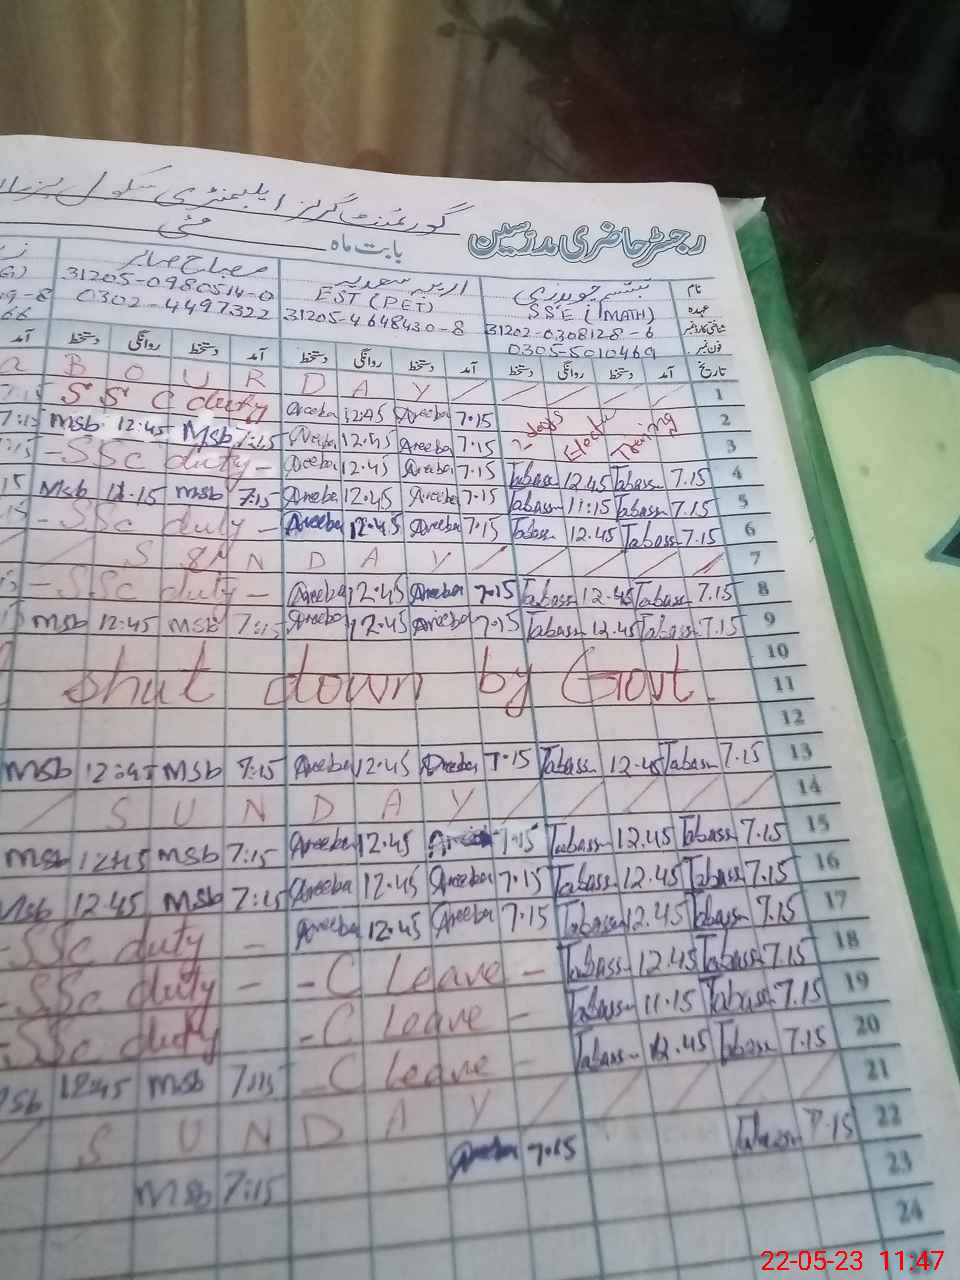 گورنمنٹ گرلز ایلیمنٹری سکول
رجسٹر حاضری مدرسین
بابت ماہ مئی
نام
مصباح صابر
عہدہ SSE (MATH)
EST (PET)
31205-0980514-0
شناختی کارڈ نمبر 31202-0308128-6
31205-4648430-8
0302-4497322
فون نمبر 0305-5010469
تاریخ آمد دستخط روانگی دستخط آمد دستخط روانگی دستخط آمد دستخط روانگی دستخط
a B O U R D A Y 1
7:15 S S C duty Areeba 12:45 Areeba 7.15 2 days Training 2
7:15 Msb 12:45 Msb 7:15 Areeba 12:45 Areeba 7.15 3
-SSc duty- Areeba 12.45 Areeba 7.15 Tabassm 12.45 Tabassm 7.15 4
15 Msb 11.15 msb 7:15 Areeba 12.45 Areeba 7.15 Tabassm 11:15 Tabassm 7.15 5
-SSc duty- Areeba 12.45 Areeba 7.15 Tabassm 12.45 Tabassm 7.15 6
S U N D A Y 7
-SSc duty- Areeba 12.45 Areeba 7.15 Tabassm 12.45 Tabassm 7.15 8
msb 12:45 msb 7:15 Areeba 12.45 Areeba 7.15 Tabassm 12.45 Tabassm 7.15 9
10
Shut down by Govt. 11
12
msb 12:45 msb 7:15 Areeba 12.45 Areeba 7.15 Tabassm 12.45 Tabassm 7.15 13
S U N D A Y 14
msb 12:45 msb 7:15 Areeba 12.45 7.15 Tabassm 12.45 Tabassm 7.15 15
Msb 12.45 msb 7:15 Areeba 12.45 Areeba 7.15 Tabassm 12.45 Tabassm 7.15 16
-SSc duty - Areeba 12.45 Areeba 7.15 Tabassm 12.45 Tabassm 7.15 17
-SSc duty - -C Leave- Tabassm 12.45 Tabassm 7.15 18
-SSc duty -C Leave - Tabassm 11.15 Tabassm 7.15 19
msb 12:45 msb 7:15 -C Leave - Tabassm 12.45 Tabassm 7.15 20
S U N D A Y 21
msb 7:15 Areeba 7.15 Tabassm 7.15 22
23
24
22-05-23 11:47